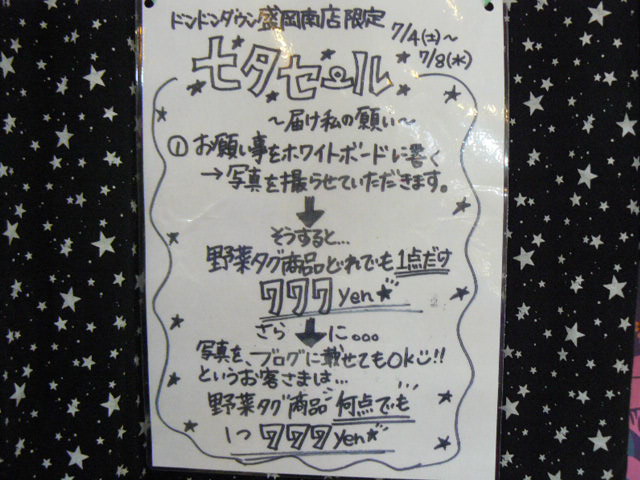 ドンドンダウン盛岡南店限定
7/4(土)〜
7/8(水)
七夕セール
〜届け私の願い〜
① お願い事をホワイトボードに書く
→写真を撮らせていただきます。
そうすると…
野菜タグ商品どれでも1点だけ
777yen★
さらに。。。
写真を、ブログに載せてもOK!!
というお客さまは…
野菜タグ商品何点でも
1つ777yen★